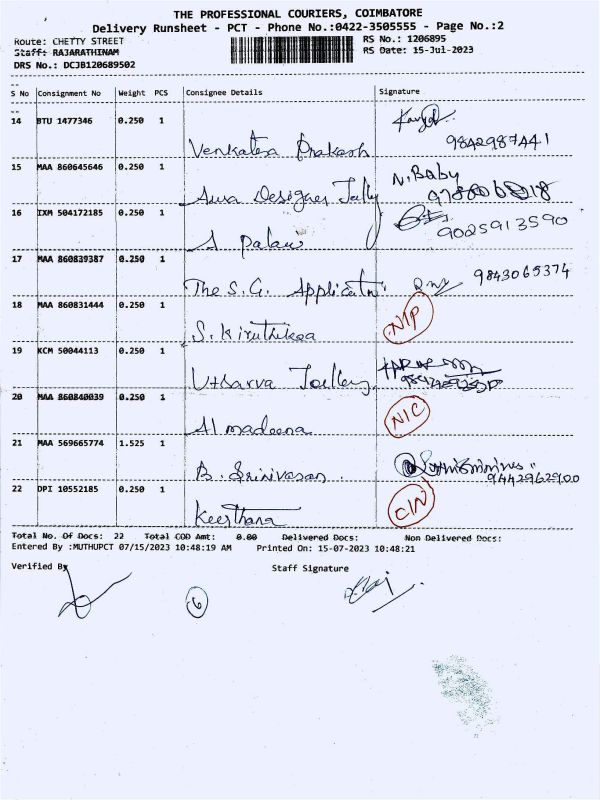 THE PROFESSIONAL COURIERS, COIMBATORE
Delivery Runsheet - PCT - Phone No.:0422-3505555 - Page No.:2
Route: CHETTY STREET RS No.: 1206895
Staff: RAJARATHINAM RS Date: 15-Jul-2023
DRS No.: DCJB120689502
S No Consignment No Weight PCS Consignee Details Signature
14 BTU 1477346 0.250 1
Venkatesa Prakash 9842987441
15 MAA 860645646 0.250 1 N. Baby
Aura Designer
16 IXM 504172185 0.250 1
A Palani 9025913590
17 MAA 860839387 0.250 1
The S.G. 9843065374
18 MAA 860831444 0.250 1
S. Kiruthikaa NIP
19 KCM 50044113 0.250 1
20 MAA 860840039 0.250 1
Al madeena NIC
21 MAA 569665774 1.525 1
B. Srinivasan 9442962900
22 DPI 10552185 0.250 1
Keerthana CIN
Total No. Of Docs: 22 Total COD Amt: 0.00 Delivered Docs: Non Delivered Docs:
Entered By :MUTHUPCT 07/15/2023 10:48:19 AM Printed On: 15-07-2023 10:48:21
Verified By Staff Signature
6